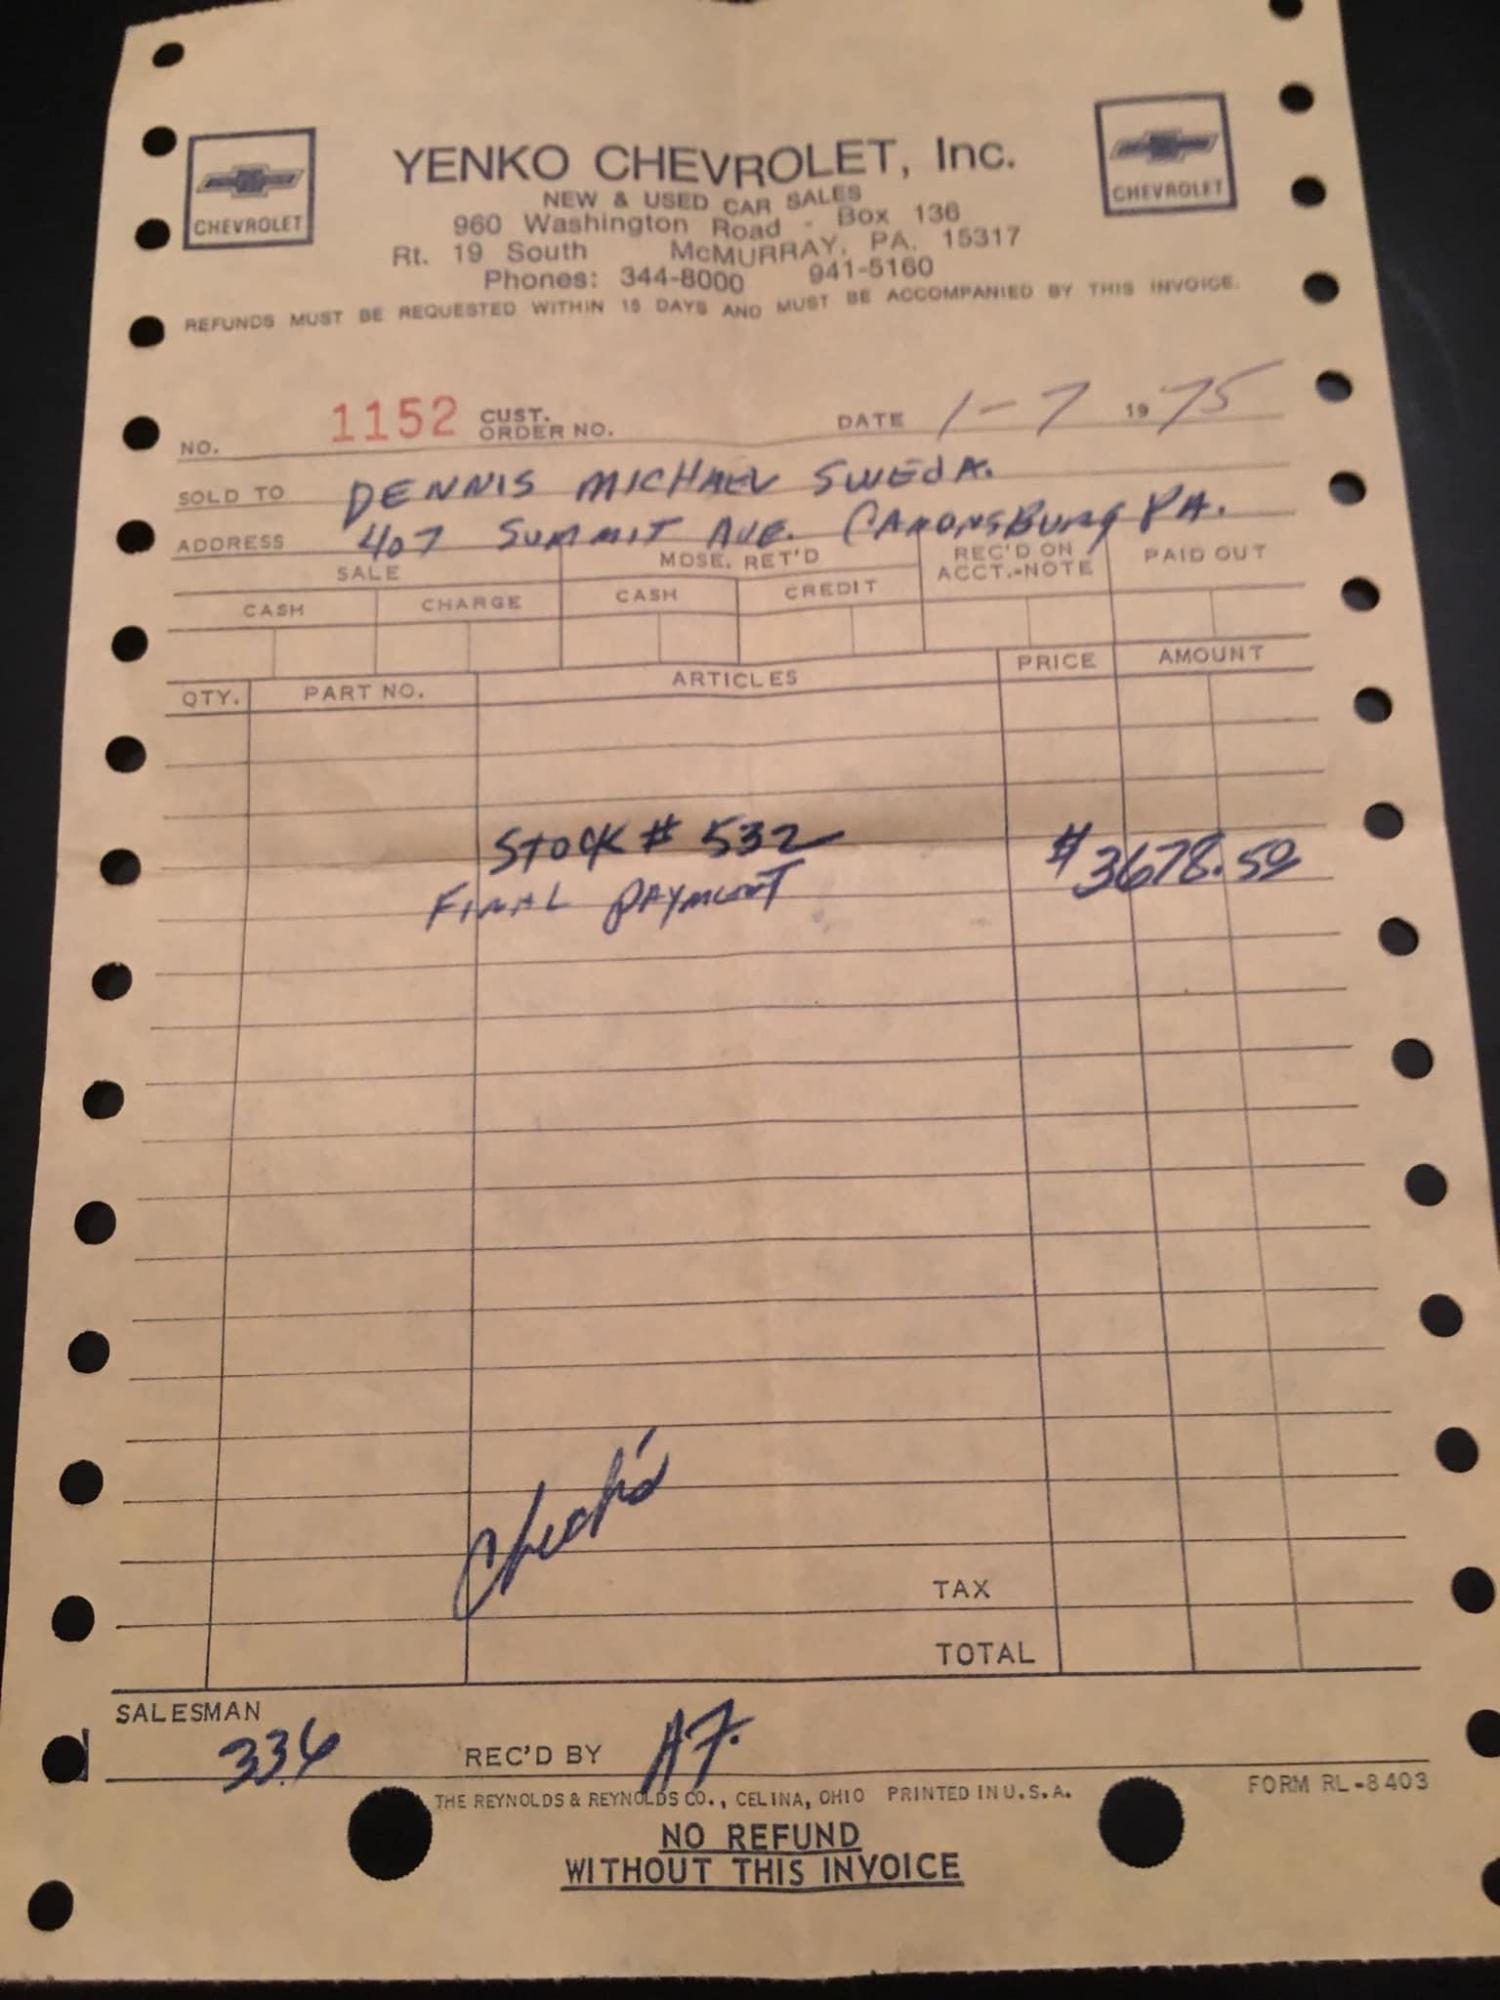 YENKO CHEVROLET, Inc.
CHEVROLET
CHEVROLET
NEW & USED CAR SALES
960 Washington Road - Box 136
Rt. 19 South McMURRAY, PA. 15317
Phones: 344-8000 941-5160
REFUNDS MUST BE REQUESTED WITHIN 15 DAYS AND MUST BE ACCOMPANIED BY THIS INVOICE.
NO. 1152 CUST. ORDER NO. DATE 1-7 1975
SOLD TO DENNIS MICHAEL SWEDA.
ADDRESS 407 SUMMIT AVE. CANONSBURG PA.
SALE MDSE. RET'D REC'D ON ACCT.-NOTE PAID OUT
CASH CHARGE CASH CREDIT
QTY. PART NO. ARTICLES PRICE AMOUNT
STOCK # 532 $3678.50
FINAL PAYMENT
TAX
TOTAL
SALESMAN 336 REC'D BY A.F.
THE REYNOLDS & REYNOLDS CO., CELINA, OHIO PRINTED IN U.S.A. FORM RL-8403
NO REFUND
WITHOUT THIS INVOICE